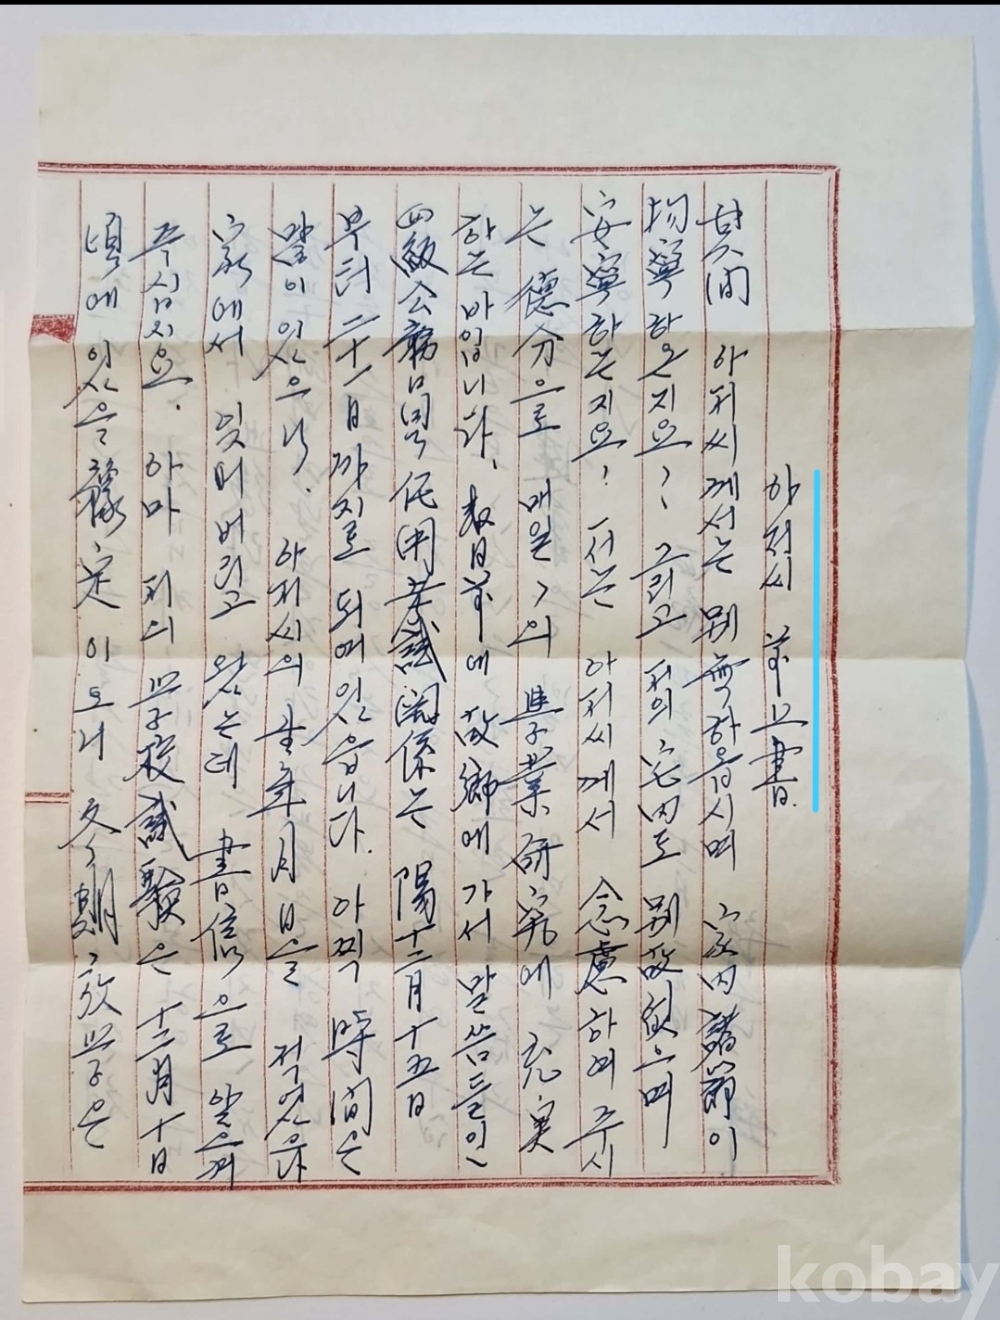 아저씨 前上書.
其間 아저씨께서는 別無하옵시며 家內諸節이
均寧하온지요? 그리고 저의 宅內도 別故없으며
安寧하는지요? 저는 아저씨께서 念慮하여 주시
는 德分으로 매일々의 學業硏究에 充実
하는바입니다. 数日前에 故鄕에 가서 말씀들인
四級公務員 任用考試 関係는 陽十二月十五日
부터 二十一日까지로 되여있읍니다. 아찍 時間은
많이 있으나. 아저씨의 生年月日을 적었으나
家에서 잊어버리고 왔는데 書信으로 알으켜
주십시요. 하마 저의 学校試験은 十二月十日
頃에 있을 豫定이오니 冬期放学은
kobay